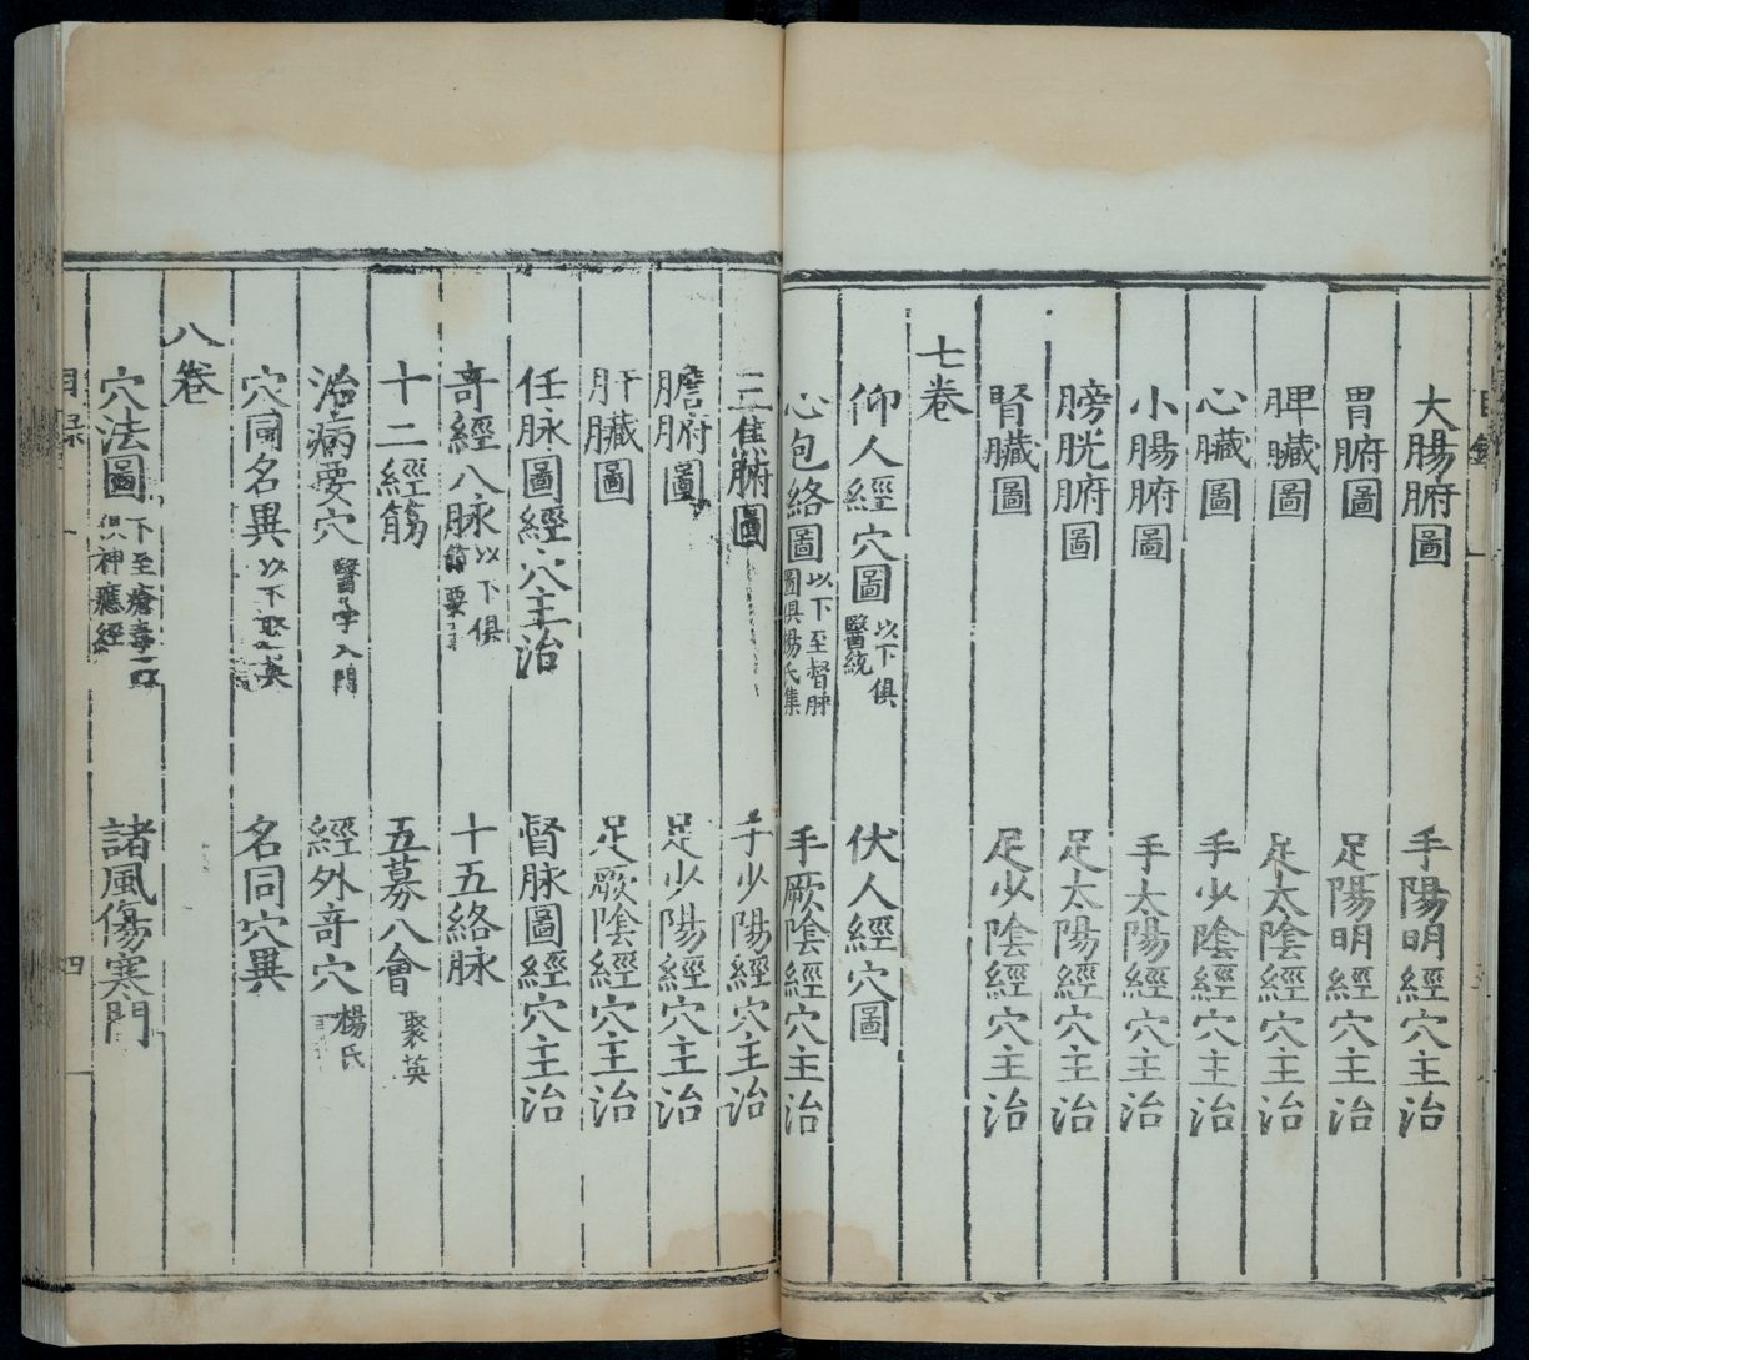 大腸腑圖　手陽明經穴主治
胃腑圖　足陽明經穴主治
脾臟圖　足太陰經穴主治
心臟圖　手少陰經穴主治
小腸腑圖　手太陽經穴主治
膀胱腑圖　足太陽經穴主治
腎臟圖　足少陰經穴主治
七卷
仰人經穴圖　以下俱醫統　伏人經穴圖
心包絡圖　以下至督脉圖俱楊氏集　手厥陰經穴主治
三焦腑圖　手少陽經穴主治
膽腑圖　足少陽經穴主治
肝臟圖　足厥陰經穴主治
任脉圖經穴主治　督脉圖經穴主治
奇經八脉　以下俱節要　十五絡脉
十二經筋　五募八會　聚英
治病要穴　醫學入門　經外奇穴　楊氏
穴同名異　以下聚英　名同穴異
八卷
穴法圖　下至瘡毒　俱神應經　諸風傷寒門
目録　四